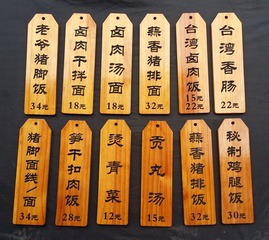 老爷猪脚饭
34元
卤肉干拌面
18元
卤肉汤面
18元
蒜香猪排面
32元
台湾卤肉饭
15元
22元
台湾香肠
22元
猪脚面线/面
34元
笋干扣肉饭
28元
烫青菜
12元
贡丸汤
15元
蒜香猪排饭
32元
秘制鸡腿饭
30元